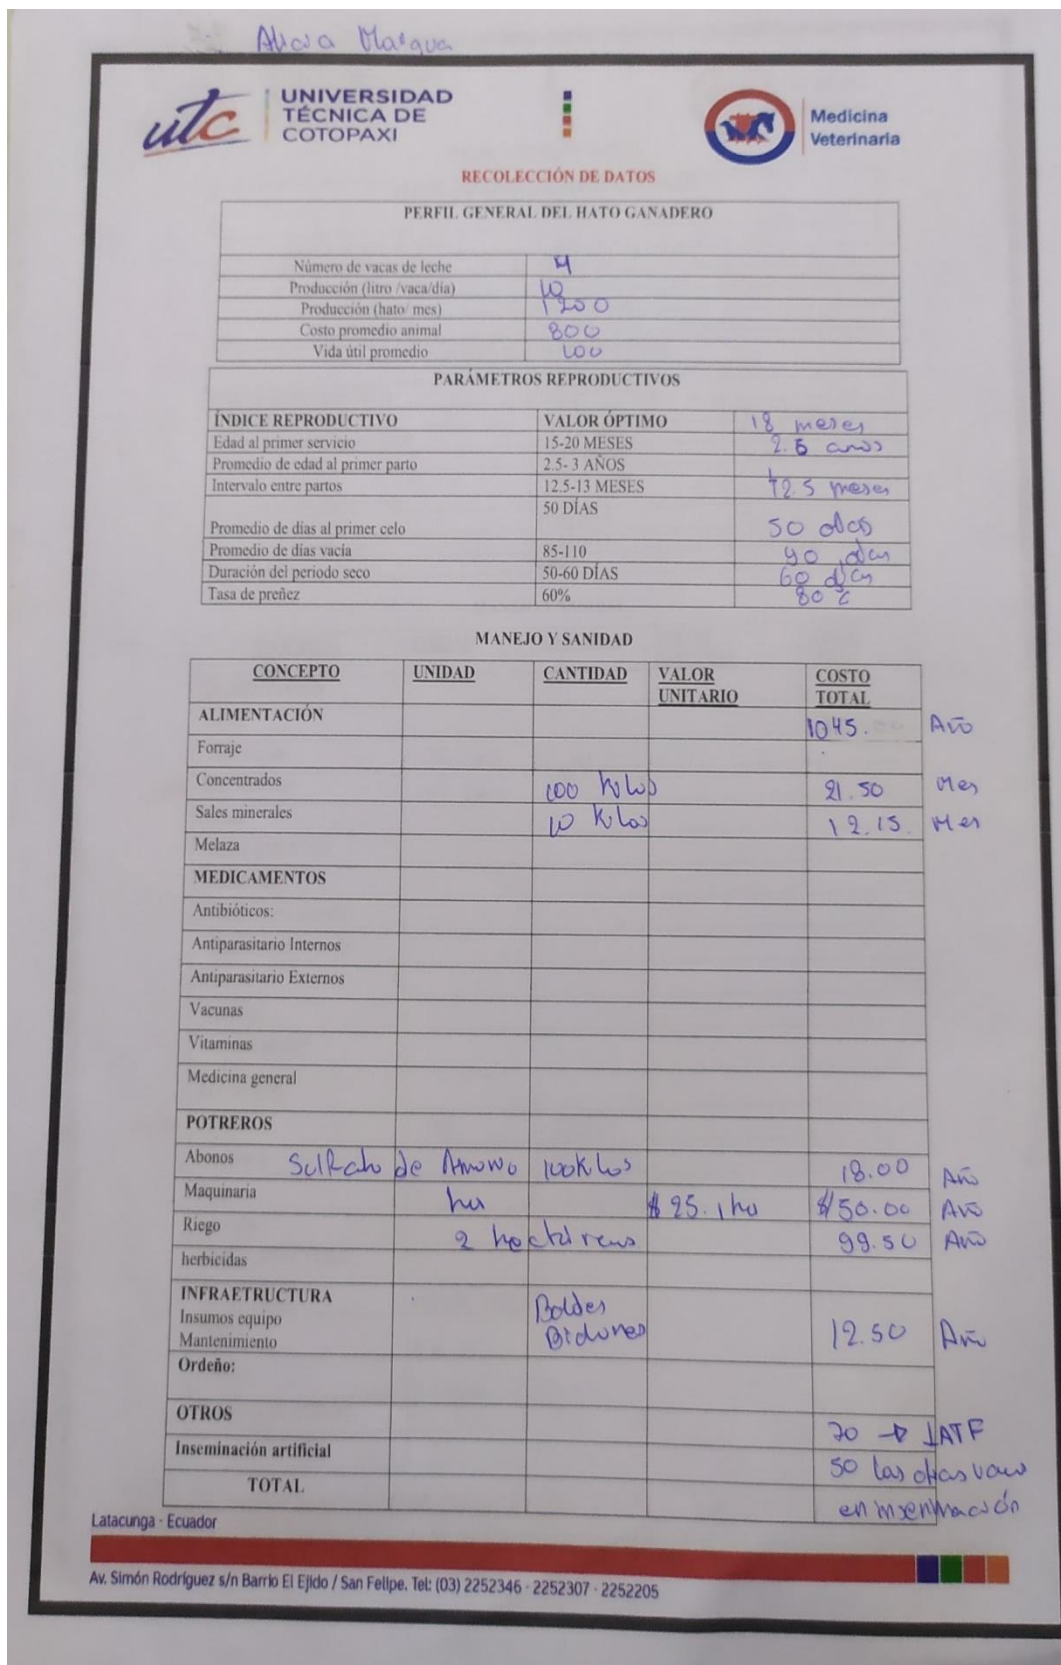 Alicia Maigua
utc UNIVERSIDAD TÉCNICA DE COTOPAXI
Medicina Veterinaria
RECOLECCIÓN DE DATOS
PERFIL GENERAL DEL HATO GANADERO
Número de vacas de leche 4
Producción (litro /vaca/día) 10
Producción (hato/ mes) 1200
Costo promedio animal 800
Vida útil promedio 100
PARÁMETROS REPRODUCTIVOS
ÍNDICE REPRODUCTIVO VALOR ÓPTIMO 18 meses
Edad al primer servicio 15-20 MESES 2.5 anos
Promedio de edad al primer parto 2.5- 3 AÑOS
Intervalo entre partos 12.5-13 MESES 12.5 meses
Promedio de días al primer celo 50 DÍAS 50 dias
Promedio de días vacía 85-110 90 dias
Duración del periodo seco 50-60 DÍAS 60 dias
Tasa de preñez 60% 80 %
MANEJO Y SANIDAD
CONCEPTO UNIDAD CANTIDAD VALOR UNITARIO COSTO TOTAL
ALIMENTACIÓN 1045.00 Año
Forraje
Concentrados 100 Kilos 21.50 Mes
Sales minerales 10 Kilos 12.15. Mes
Melaza
MEDICAMENTOS
Antibióticos:
Antiparasitario Internos
Antiparasitario Externos
Vacunas
Vitaminas
Medicina general
POTREROS
Abonos Sulfato de Amonio 100Kilos 18.00 Año
Maquinaria ha $ 25. 1 ha $50.00 Año
Riego 2 hectareas 99.50 Año
herbicidas
INFRAETRUCTURA
Insumos equipo Baldes
Mantenimiento Bidones 12.50 Año
Ordeño:
OTROS 70 → IATF
Inseminación artificial 50 las otras vacas
TOTAL en inseminación
Latacunga - Ecuador
Av. Simón Rodríguez s/n Barrio El Ejido / San Felipe. Tel: (03) 2252346 - 2252307 - 2252205